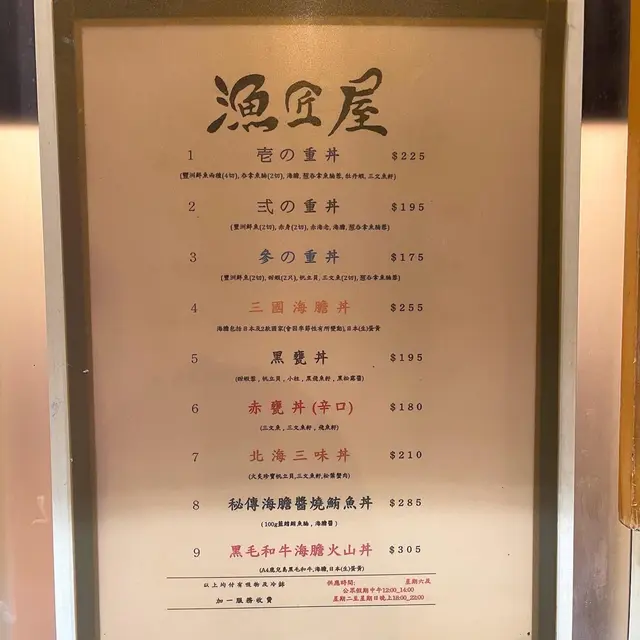 漁匠屋
1 壱の重丼 $225
(豐洲鮮魚兩種(4切), 吞拿魚腩(2切), 海膽, 吞拿魚腩蓉, 牡丹蝦, 三文魚籽)
2 弍の重丼 $195
(豐洲鮮魚(2切), 赤身(2切), 赤海老, 海膽, 吞拿魚腩蓉)
3 參の重丼 $175
(豐洲鮮魚(2切), 甜蝦(2只), 帆立貝, 三文魚(2切), 吞拿魚腩蓉)
4 三國海膽丼 $255
海膽包括日本及2款國家(會因季節性有所變動), 日本(生)蛋黃
5 黑甕丼 $195
(甜蝦蓉, 帆立貝, 小柱, 黑飛魚籽, 黑松露醬)
6 赤甕丼(辛口) $180
(三文魚, 三文魚籽, 飛魚籽)
7 北海三味丼 $210
(火炙珍寶帆立貝,三文魚籽,松葉蟹肉)
8 秘傳海膽醬燒鮪魚丼 $285
(100g藍鰭鮪魚腩, 海膽醬)
9 黑毛和牛海膽火山丼 $305
(A4鹿兒島黑毛和牛,海膽,日本(生)蛋黃)
以上均付有漬物及冷餸
加一服務收費
供應時間: 星期六及
公眾假期中午12:00_14:00
星期二至星期日晚上18:00_22:00